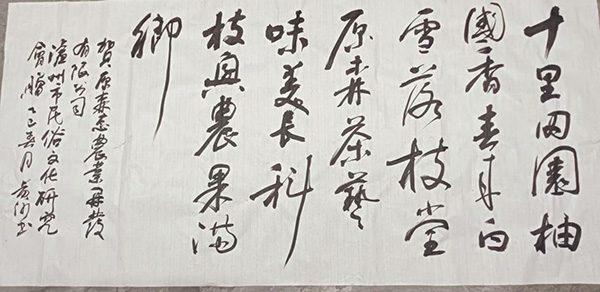 十里田園柚
國香春來白
雪落枝堂
原森茶藝
味美長科
技興農果滿
鄉
賀原森态農業開發
有限公司
瀘州市民俗文化研究
會贈 乙巳春月